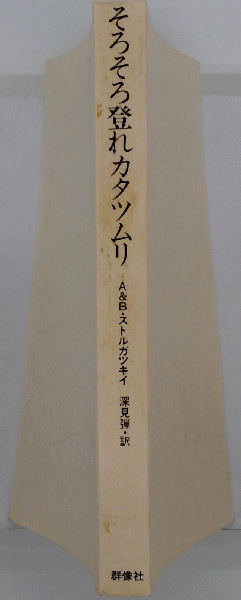 そろそろ登れカタツムリ
A&B・ストルガツキイ 深見弾・訳
群像社